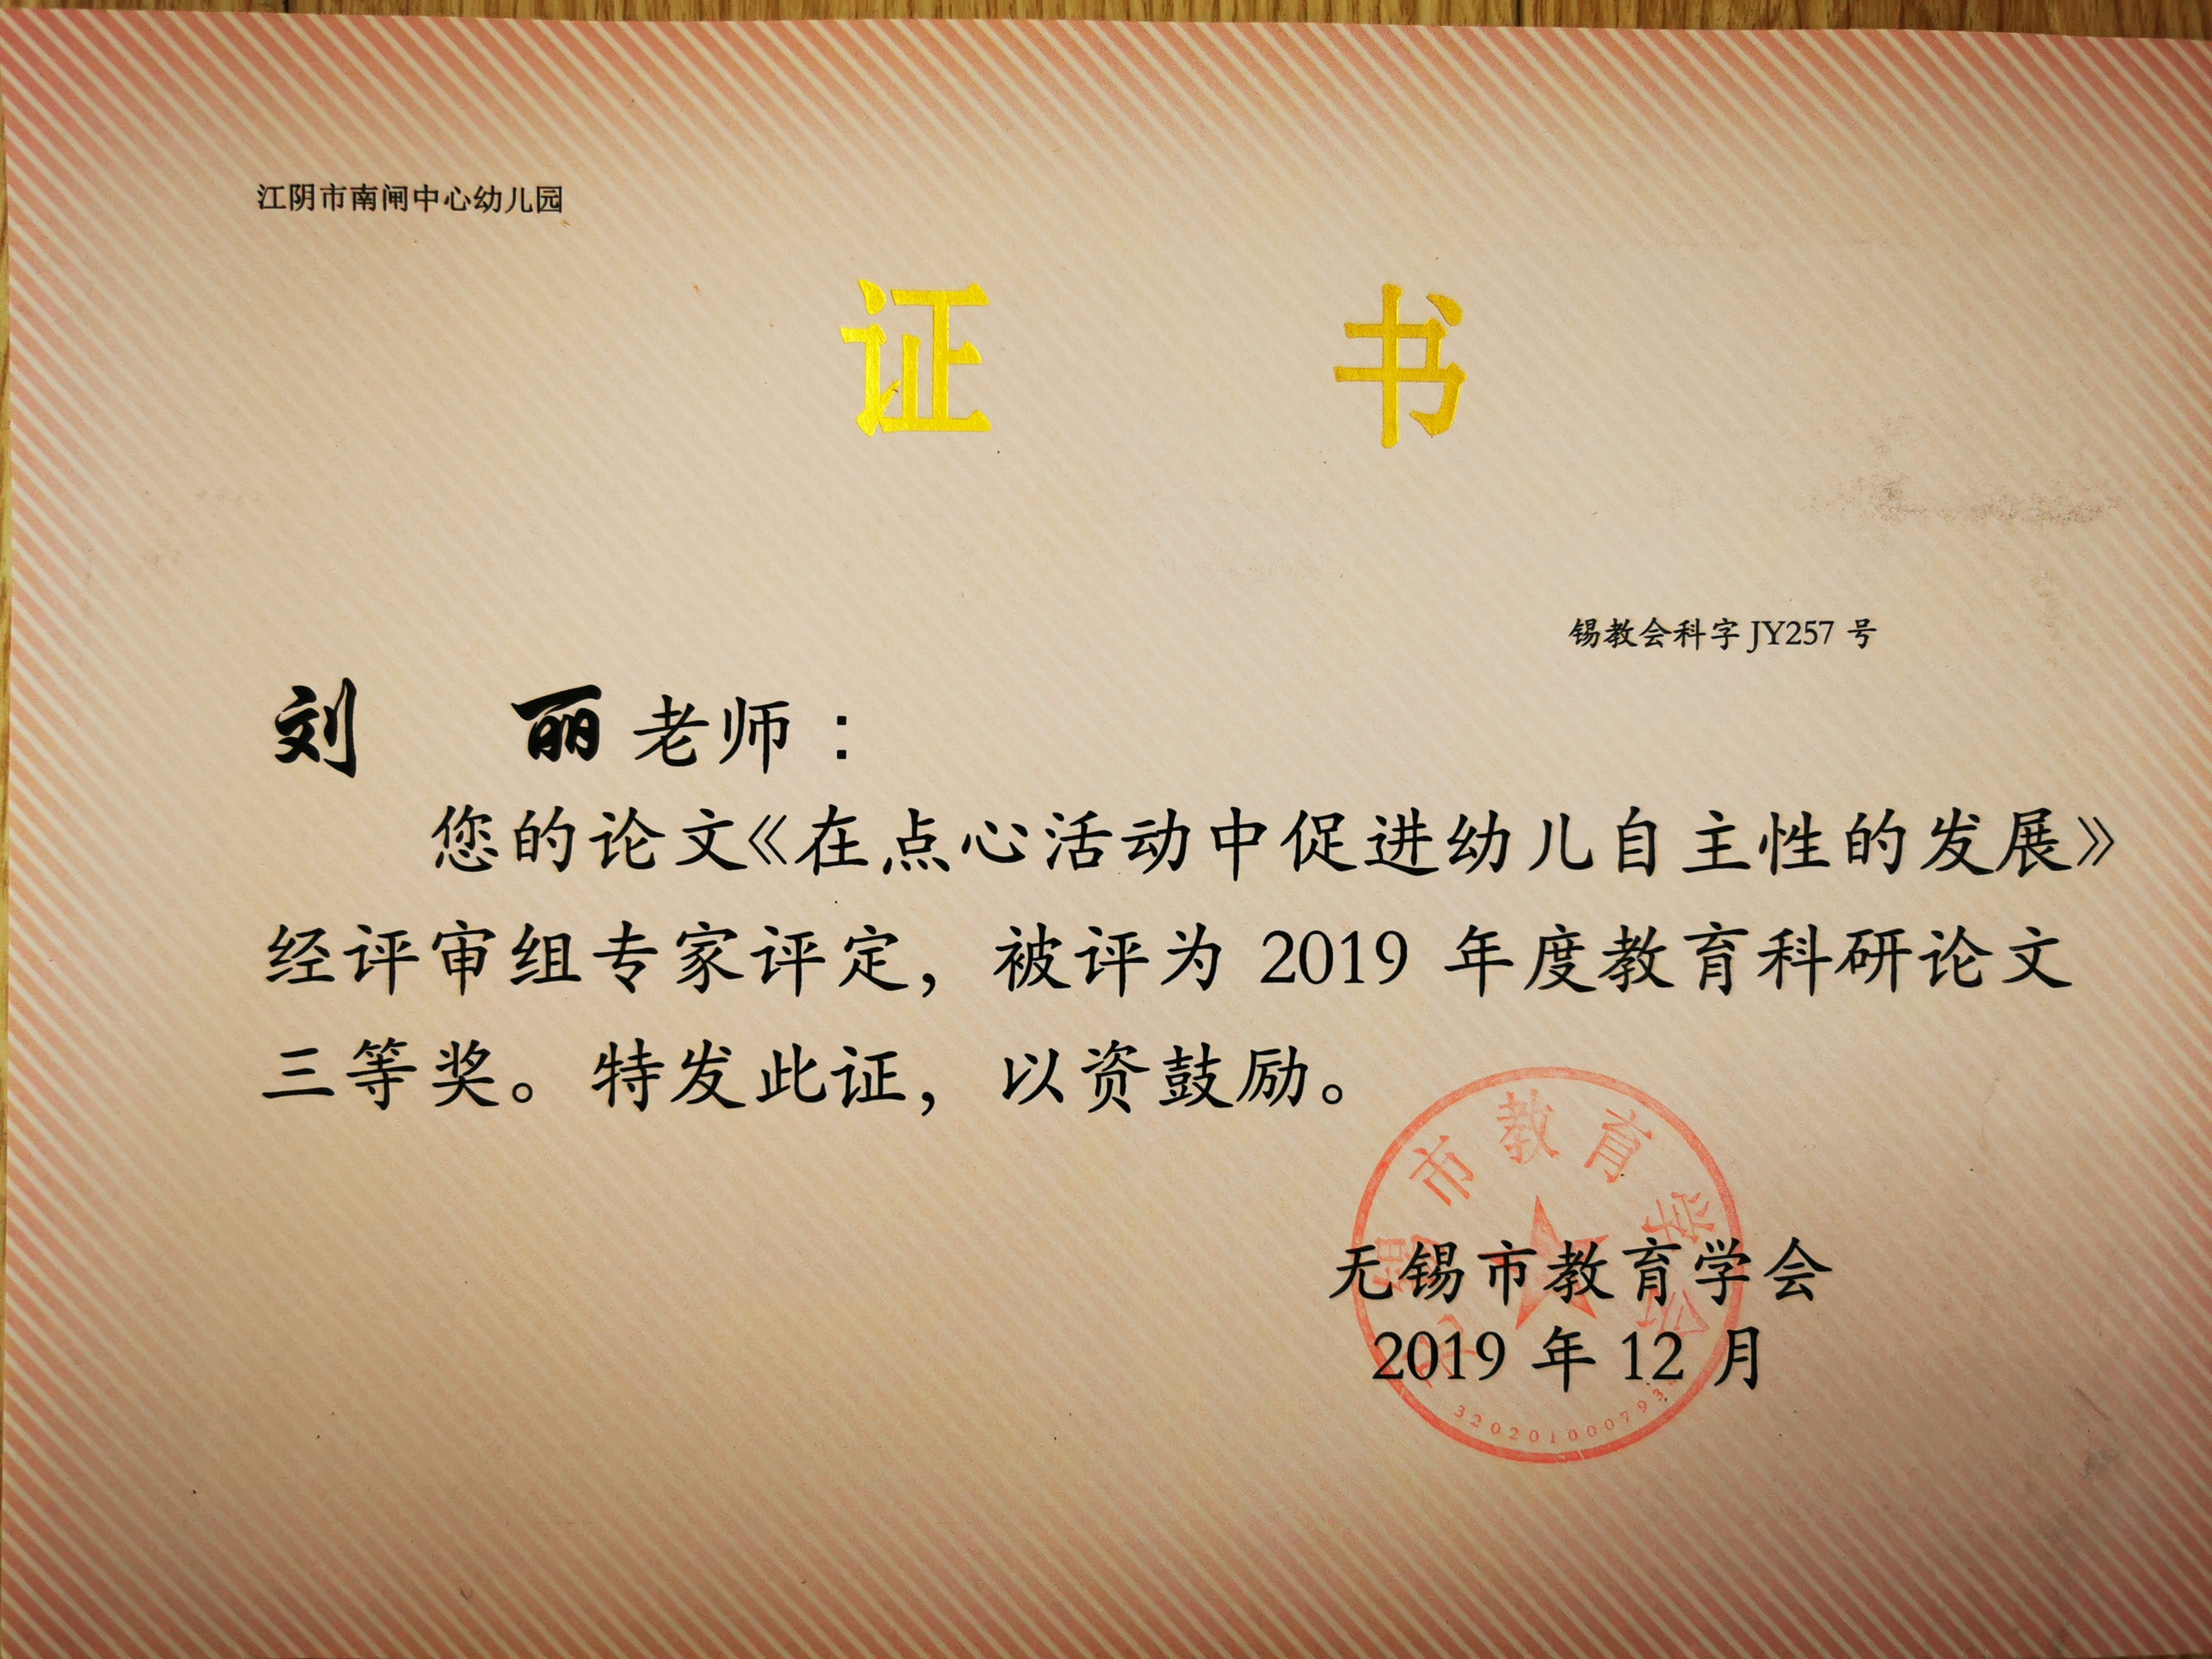 江阴市南闸中心幼儿园
证 书
锡教会科字 JY257 号
刘 丽 老师：
您的论文《在点心活动中促进幼儿自主性的发展》
经评审组专家评定，被评为 2019 年度教育科研论文
三等奖。特发此证，以资鼓励。
无锡市教育学会
无锡市教育学会
2019 年 12 月